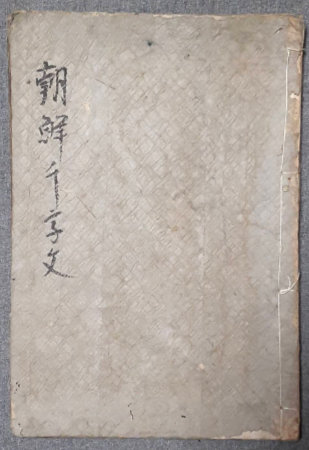 朝鮮千字文